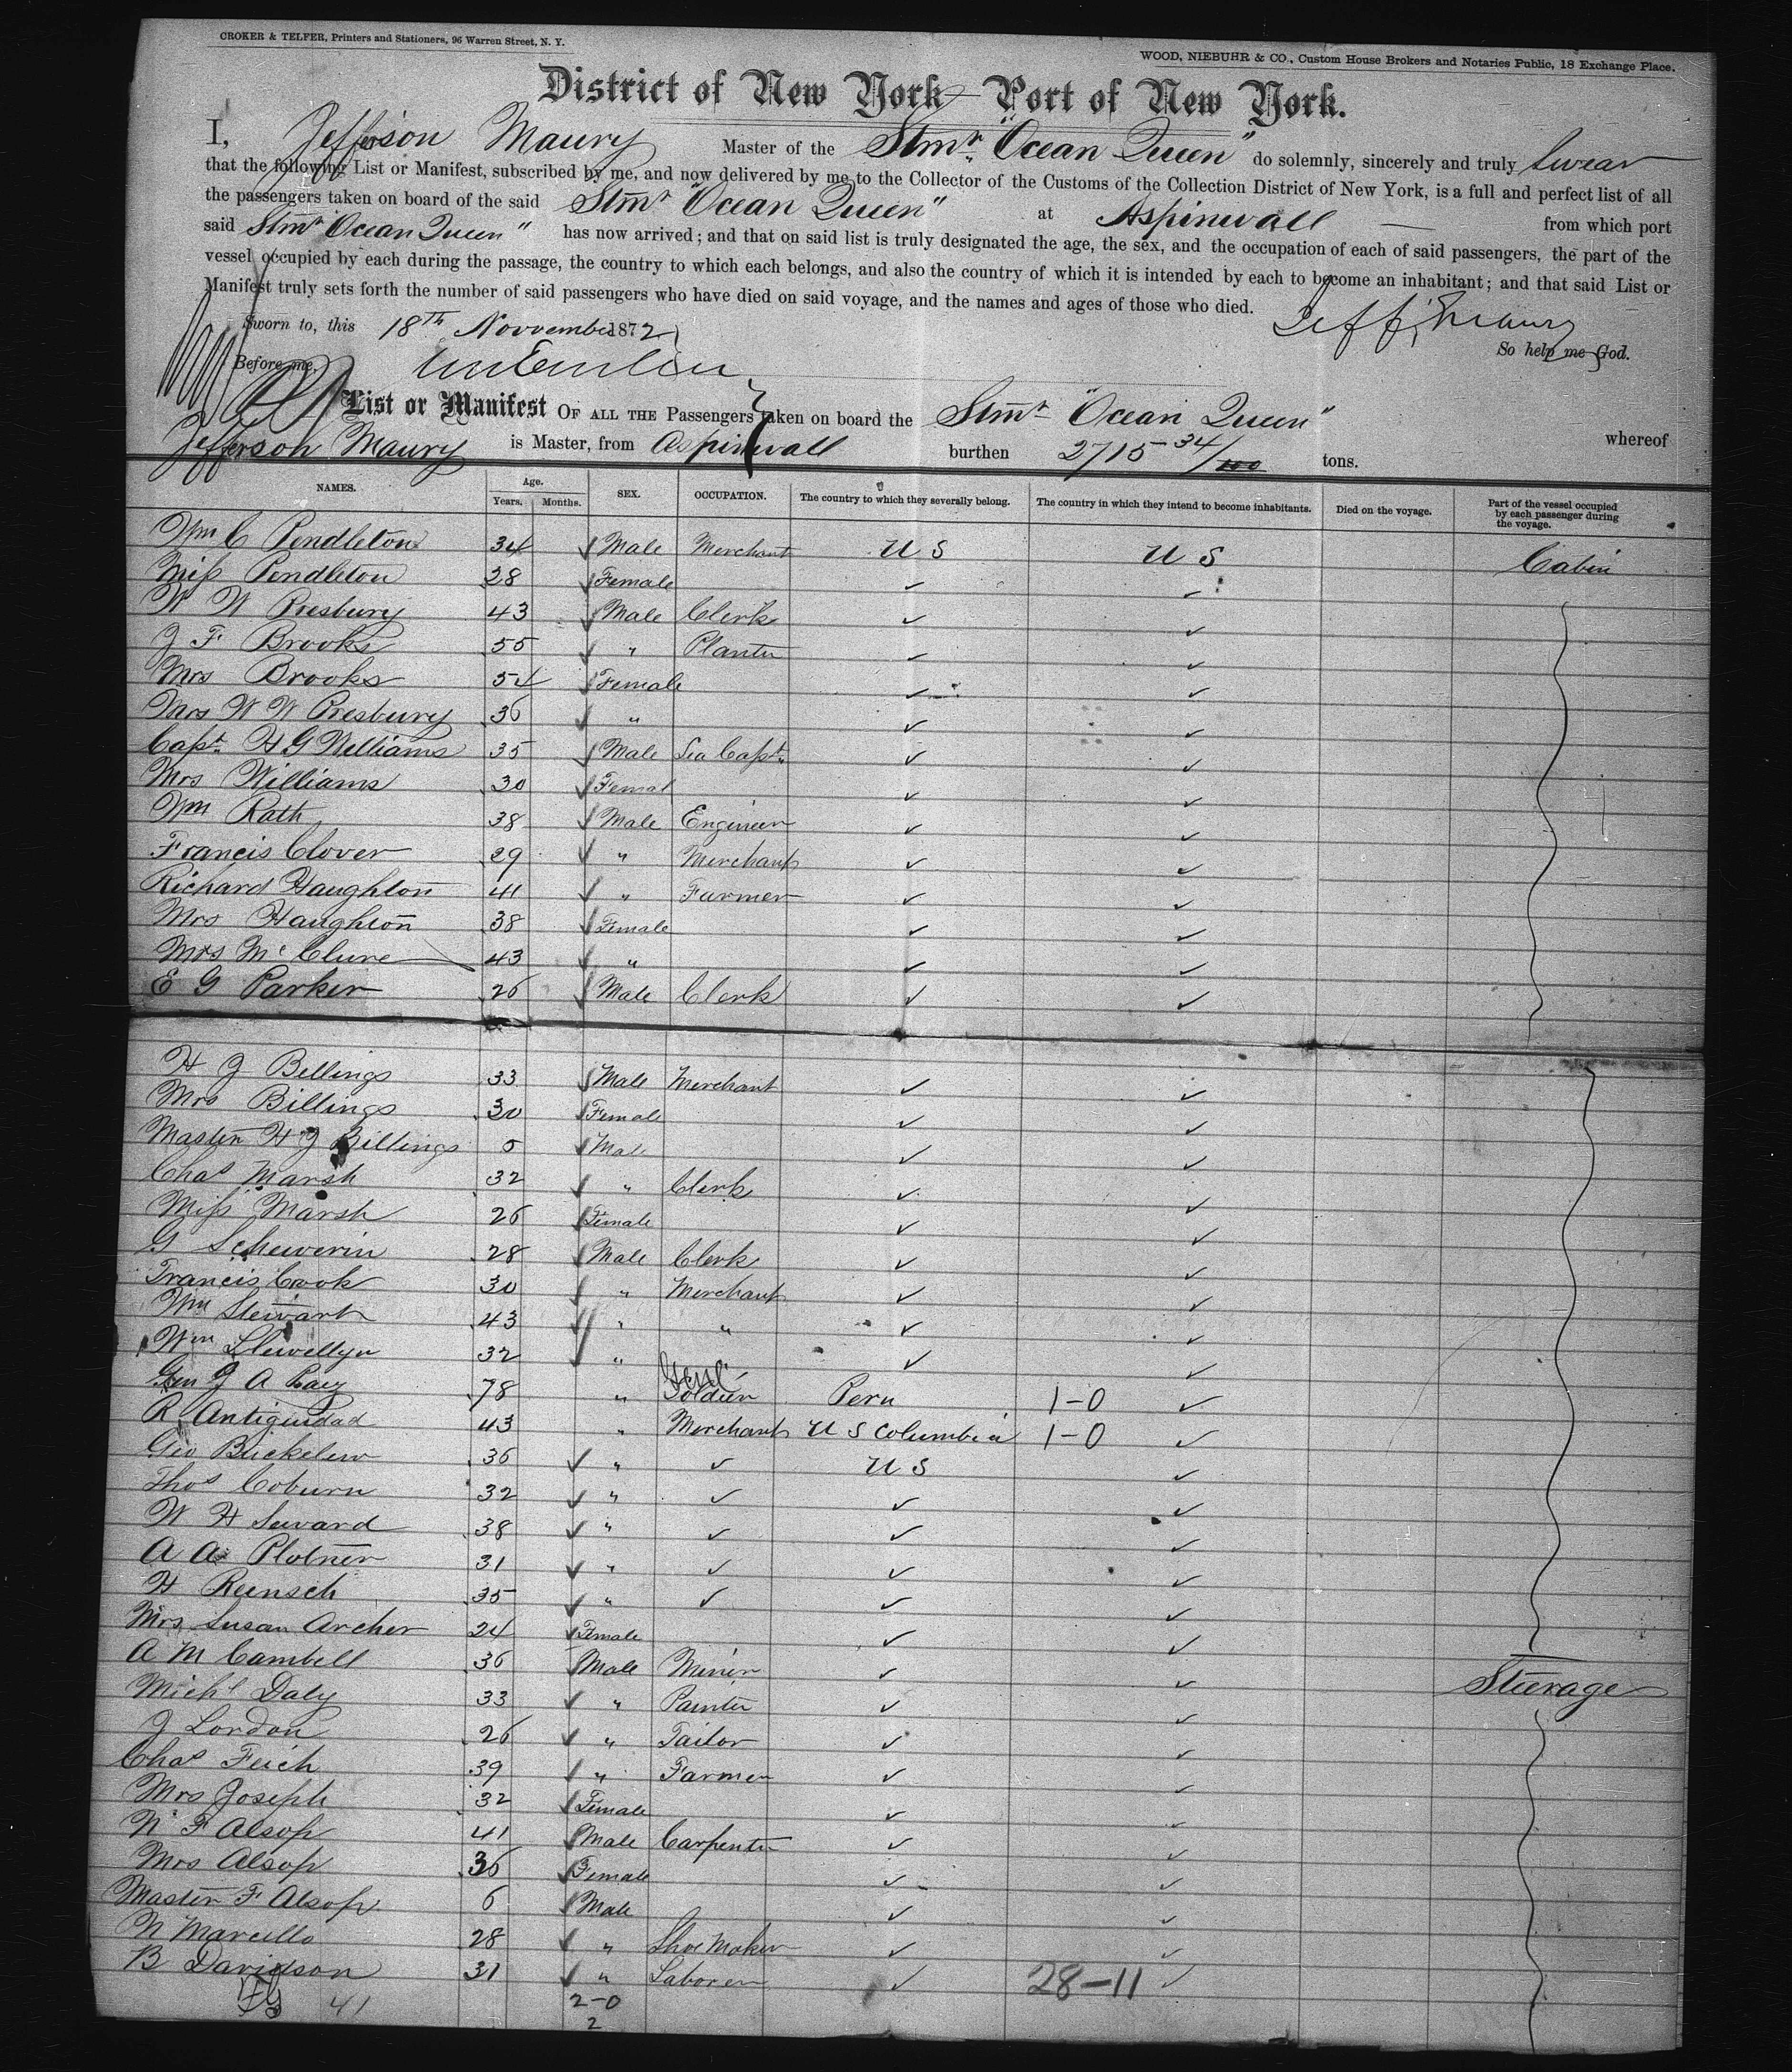 CROKER & TELFER, Printers and Stationers, 96 Warren Street, N. Y.
WOOD, NIEBUHR & CO., Custom House Brokers and Notaries Public, 18 Exchange Place.
District of New York Port of New York.
I, Jefferson Maury Master of the Stmr "Ocean Queen" do solemnly, sincerely and truly swear
that the following List or Manifest, subscribed by me, and now delivered by me to the Collector of the Customs of the Collection District of New York, is a full and perfect list of all
the passengers taken on board of the said Stmr "Ocean Queen" at Aspinwall from which port
said Stmr "Ocean Queen" has now arrived; and that on said list is truly designated the age, the sex, and the occupation of each of said passengers, the part of the
vessel occupied by each during the passage, the country to which each belongs, and also the country of which it is intended by each to become an inhabitant; and that said List or
Manifest truly sets forth the number of said passengers who have died on said voyage, and the names and ages of those who died.
Jeff Maury
Sworn to, this 18th November 1872
So help me God.
Before me,
List or Manifest OF ALL THE Passengers taken on board the Stmr "Ocean Queen" whereof
Jefferson Maury is Master, from Aspinwall burthen 2715 34/100 tons.
NAMES. Age. Years. Months. SEX. OCCUPATION. The country to which they severally belong. The country in which they intend to become inhabitants. Died on the voyage. Part of the vessel occupied by each passenger during the voyage.
Wm C Pendleton 34 ✓ Male Merchant U S U S Cabin
Miss Pendleton 28 ✓ Female ✓ ✓
W W Presbury 43 ✓ Male Clerk ✓ ✓
J F Brooks 55 ✓ " Planter ✓ ✓
Mrs Brooks 54 ✓ Female ✓ ✓
Mrs W W Presbury 36 ✓ " ✓ ✓
Capt. H G Williams 35 ✓ Male Sea Capt. ✓ ✓
Mrs Williams 30 ✓ Femal ✓ ✓
Wm Rath 38 ✓ Male Engineer ✓ ✓
Francis Clover 29 ✓ " Merchant ✓ ✓
Richard Haughton 41 ✓ " Farmer ✓ ✓
Mrs Haughton 38 ✓ Female ✓ ✓
Mrs McClure 43 ✓ " ✓ ✓
E G Parker 26 ✓ Male Clerk ✓ ✓
H J Billings 33 ✓ Male Merchant ✓ ✓
Mrs Billings 30 ✓ Female ✓ ✓
Master H J Billings 5 ✓ Male ✓ ✓
Chas Marsh 32 ✓ " Clerk ✓ ✓
Miss Marsh 26 ✓ Female ✓ ✓
G Schewerin 28 ✓ Male Clerk ✓ ✓
Francis Cook 30 ✓ " Merchant ✓ ✓
Wm Stewart 43 ✓ " " ✓ ✓
Wm Llewellyn 32 ✓ " ✓ ✓
Gen J A Paez 78 " Soldier Peru 1-0 ✓
R Antiguidad 43 " Merchant U S Columbia 1-0 ✓
Geo Buckelew 36 ✓ " ✓ U S ✓
Thos Coburn 32 ✓ " ✓ ✓ ✓
W H Seward 38 ✓ " ✓ ✓ ✓
A A Plotner 31 ✓ " ✓ ✓ ✓
H Reensch 35 ✓ " ✓ ✓ ✓
Mrs Susan Archer 24 ✓ Female ✓ ✓
A M Cambell 36 ✓ Male Miner ✓ ✓ Steerage
Michl Daly 33 ✓ " Painter ✓ ✓
J Lordon 26 ✓ " Tailor ✓ ✓
Chas Feich 39 ✓ " Farmer ✓ ✓
Mrs Joseph 32 ✓ Female ✓ ✓
N F Alsop 41 ✓ Male Carpenter ✓ ✓
Mrs Alsop 36 ✓ Female ✓ ✓
Master F Alsop 6 ✓ Male ✓ ✓
N Marcillo 28 ✓ " Shoe Maker ✓ ✓
B Davidson 31 ✓ " Laborer ✓ 28-11 ✓
41 2-0
2